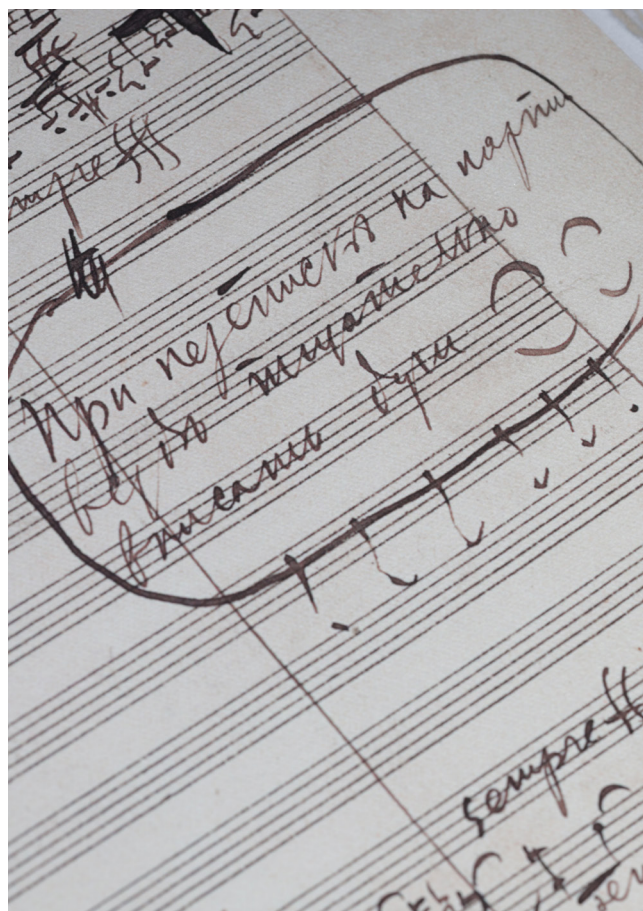 mpre fff
При переписке на партии
везде тщательно
вписать дуги
sempre ff